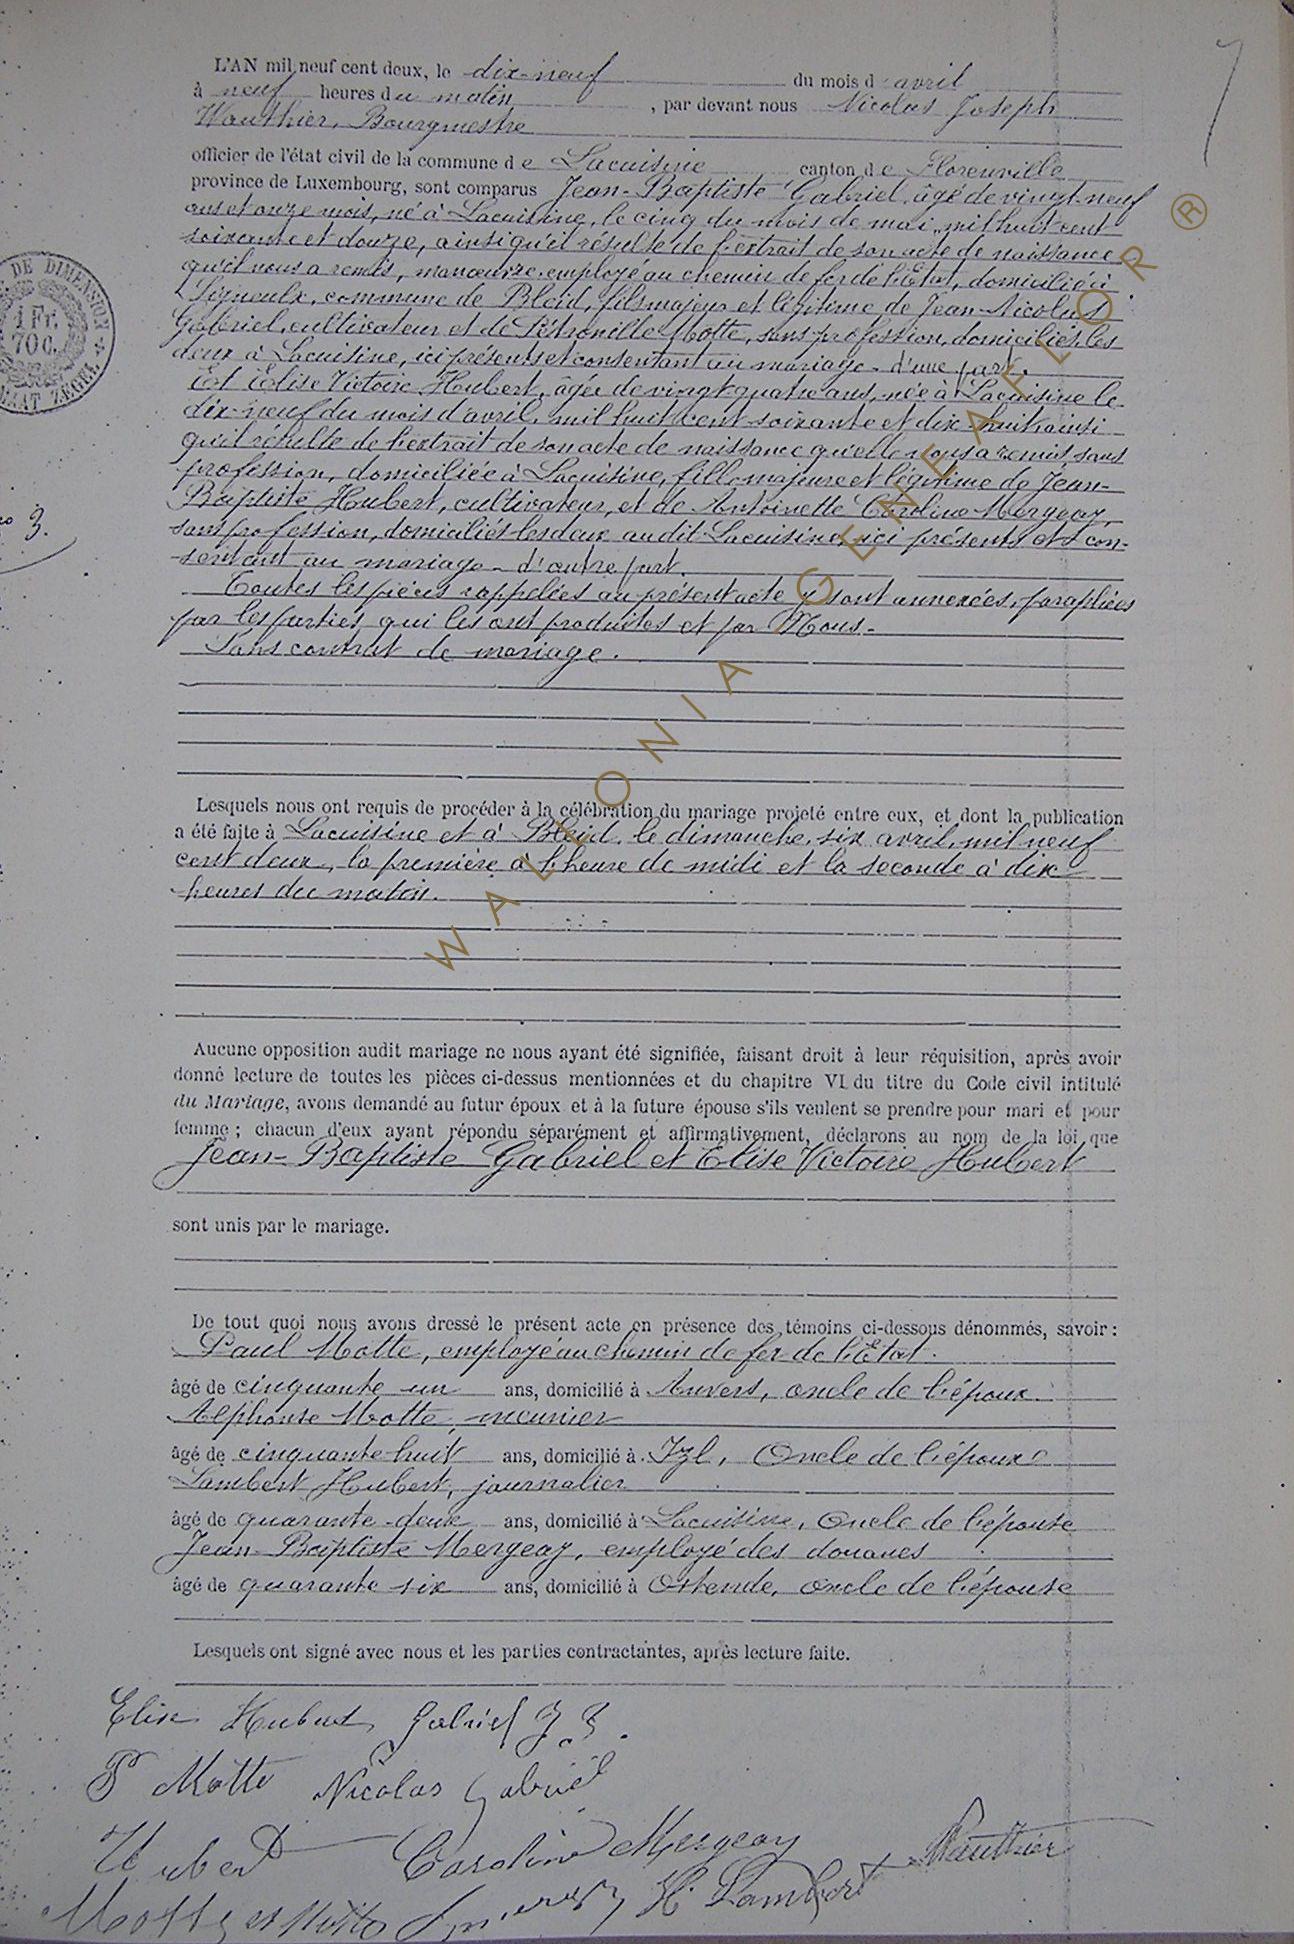 7
L'AN mil neuf cent deux, le dix-neuf du mois d'avril
à neuf heures du matin, par devant nous Nicolas Joseph
Wauthier, Bourgmestre
officier de l'état civil de la commune de Lacuisine canton de Florenville
province de Luxembourg, sont comparus Jean-Baptiste Gabriel, âgé de vingt-neuf
ans et onze mois, né à Lacuisine, le cinq du mois de mai, mil huit cent
soixante et douze, ainsi qu'il résulte de l'extrait de son acte de naissance
qu'il nous a remis, manœuvre employé au chemin de fer de l'Etat, domicilié à
Signeulx, commune de Bleid, fils majeur et légitime de Jean-Nicolas
Gabriel, cultivateur et de Pétronille Motte, sans profession, domiciliés les
deux à Lacuisine, ici présents et consentant au mariage - d'une part.
Et Elise Victoire Hubert, âgée de vingt-quatre ans, née à Lacuisine le
dix-neuf du mois d'avril, mil huit cent soixante et dix-huit ainsi
qu'il résulte de l'extrait de son acte de naissance qu'elle nous a remis, sans
profession, domiciliée à Lacuisine, fille majeure et légitime de Jean-
Baptiste Hubert, cultivateur, et de Antoinette Caroline Mergeay,
sans profession, domiciliés les deux au dit Lacuisine, ici présents et con-
sentant au mariage - d'autre part.
Toutes les pièces rappelées au présent acte y sont annexées, paraphées
par les parties qui les ont produites et par Nous.
Sans contrat de mariage.
DE DIMENSION
1 Fr.
70 C.
3.
Lesquels nous ont requis de procéder à la célébration du mariage projeté entre eux, et dont la publication
a été faite à Lacuisine et à Bleid, le dimanche, six avril, mil neuf
cent deux, la première à l'heure de midi et la seconde à dix
heures du matin.
Aucune opposition audit mariage ne nous ayant été signifiée, faisant droit à leur réquisition, après avoir
donné lecture de toutes les pièces ci-dessus mentionnées et du chapitre VI du titre du Code civil intitulé
du Mariage, avons demandé au futur époux et à la future épouse s'ils veulent se prendre pour mari et pour
femme ; chacun d'eux ayant répondu séparément et affirmativement, déclarons au nom de la loi que
Jean-Baptiste Gabriel et Elise Victoire Hubert
sont unis par le mariage.
De tout quoi nous avons dressé le présent acte en présence des témoins ci-dessous dénommés, savoir :
Paul Motte, employé au chemin de fer de l'Etat.
âgé de cinquante un ans, domicilié à Anvers, oncle de l'époux.
Alphonse Motte, meunier
âgé de cinquante-huit ans, domicilié à Izel, Oncle de l'époux
Lambert Hubert, journalier
âgé de quarante-deux ans, domicilié à Lacuisine, Oncle de l'épouse
Jean-Baptiste Mergeay, employé des douanes
âgé de quarante six ans, domicilié à Ostende, oncle de l'épouse
Lesquels ont signé avec nous et les parties contractantes, après lecture faite.
Elise Hubert Gabriel J. B.
P Motte Nicolas Gabriel
Hubert Caroline Mergeay Wauthier
Motte H. Lambert
WALLONIA GENEAFLOR ®